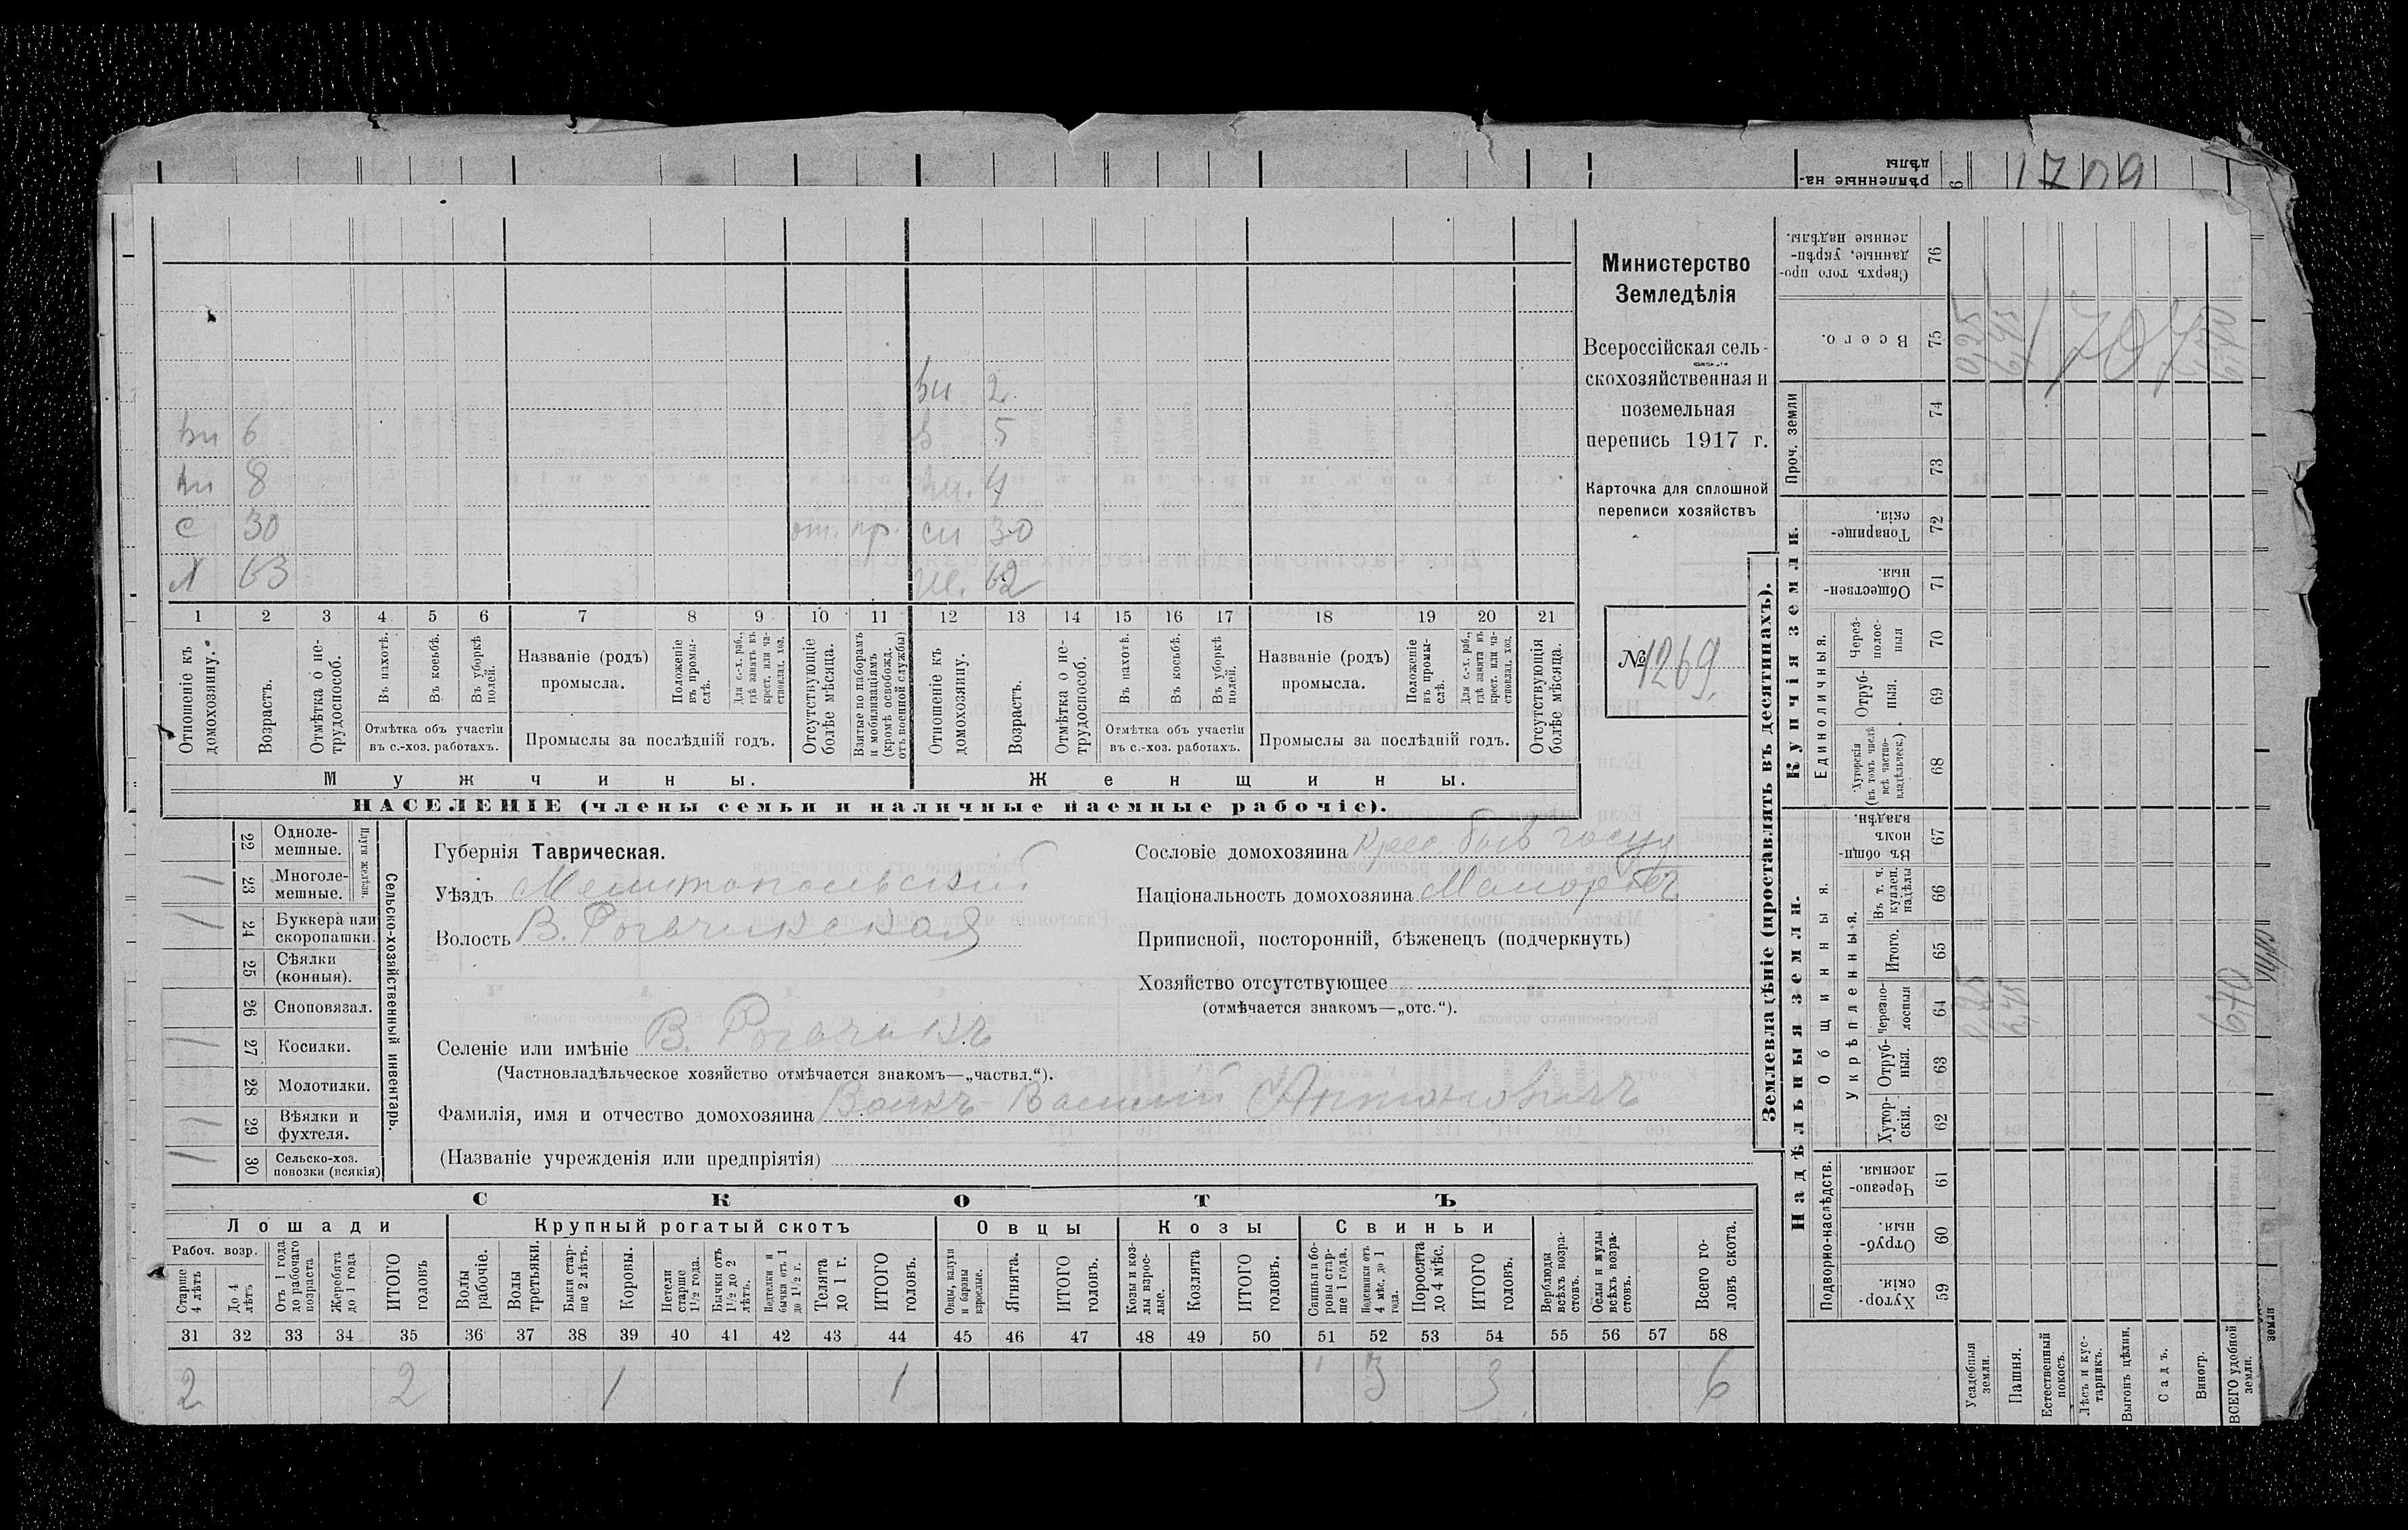 дѣлы
рѣпленные на-
6
1709
вн 2
вн 6 в 5
вн 8 вн. 4
с 30 от. пр. сн 30
х 63 ж. 62
1 2 3 4 5 6 7 8 9 10 11 12 13 14 15 16 17 18 19 20 21
Отношеніе къ домохозяину.
Возрастъ.
Отмѣтка о не-трудоспособ.
Въ пахотѣ.
Въ косьбѣ.
Въ уборкѣ полей.
Отмѣтка объ участіи
въ с.-хоз. работахъ.
Названіе (родъ)
промысла.
Положеніе въ промы-слѣ.
Для с.-х. раб., гдѣ занятъ въ крест. или ча-ствовлад. хоз.
Промыслы за послѣдній годъ.
Отсутствующіе болѣе мѣсяца.
Взятые по наборамъ и мобилизаціямъ (кромѣ освобожд. отъ военной службы)
Отношеніе къ домохозяину.
Возрастъ.
Отмѣтка о не-трудоспособ.
Въ пахотѣ.
Въ косьбѣ.
Въ уборкѣ полей.
Отмѣтка объ участіи
въ с.-хоз. работахъ.
Названіе (родъ)
промысла.
Положеніе въ промы-слѣ.
Для с.-х. раб., гдѣ занята въ крест. или ча-ствовлад. хоз.
Промыслы за послѣдній годъ.
Отсутствующія болѣе мѣсяца.
Мужчины. Женщины.
НАСЕЛЕНІЕ (члены семьи и наличные наемные рабочіе).
Министерство
Земледѣлія
Всероссійская сель-
скохозяйственная и
поземельная
перепись 1917 г.
Карточка для сплошной
переписи хозяйствъ
№ 1269.
Сельско-хозяйственный инвентарь.
Плуги желѣзн.
22 Одноле-
мешные.
23 Многоле-
мешные.
24 Буккера или
скоропашки.
25 Сѣялки
(конныя).
26 Сноповязал.
27 Косилки.
28 Молотилки.
29 Вѣялки и
фухтеля.
30 Сельско-хоз.
повозки (всякія)
Губернія Таврическая.
Уѣздъ Мелитопольскій
Волость В. Рогачикская
Селеніе или имѣніе В. Рогачикъ
(Частновладѣльческое хозяйство отмѣчается знакомъ—„частвл.“).
Фамилія, имя и отчество домохозяина Волкъ Василій Антоновичъ
(Названіе учрежденія или предпріятія)
Сословіе домохозяина крес. быв госуд
Національность домохозяина Малор
Приписной, посторонній, бѣженецъ (подчеркнуть)
Хозяйство отсутствующее
(отмѣчается знакомъ—„отс.“).
СКОТЪ
Лошади Крупный рогатый скотъ Овцы Козы Свиньи
Рабоч. возр.
Старше 4 лѣтъ
До 4 лѣтъ
Отъ 1 года до рабочаго возраста
Жеребята до 1 года
ИТОГО головъ
Волы рабочіе.
Волы третьяки.
Быки стар-ше 2 лѣтъ.
Коровы.
Нетели старше 1½ года.
Бычки отъ 1½ до 2 лѣтъ.
Подтелки и бычки отъ 1 до 1½ г.
Телята до 1 г.
ИТОГО головъ.
Овцы, валухи и бараны взрослые.
Ягнята.
ИТОГО головъ.
Козы и коз-лы взрос-лые.
Козлята
ИТОГО головъ.
Свиньи и бо-ровы стар-ше 1 года.
Подсвинки отъ 4 мѣс. до 1 года.
Поросята до 4 мѣс.
ИТОГО головъ.
Верблюды всѣхъ возра-стовъ.
Ослы и мулы всѣхъ возра-стовъ.
Всего го-ловъ скота.
31 32 33 34 35 36 37 38 39 40 41 42 43 44 45 46 47 48 49 50 51 52 53 54 55 56 57 58
2 2 1 1 3 3 6
Землевладѣніе (проставлять въ десятинахъ).
Купчія земли.
Надѣльныя земли.
Сверхъ того про-данные, укрѣп-ленные надѣлы. 76
Всего. 75
Проч. земли 74
73
Товарище-скія. 72
Обществен-ныя. 71
Единоличныя.
Через-полос-ныя 70
Отруб-ныя. 69
Хуторскія (въ томъ числѣ всѣ частно-владѣльческ.) 68
Общинныя.
Въ общин-номъ владѣн. 67
Укрѣпленныя.
Въ т. ч. куплен. надѣлы 66
Итого. 65
Черезпо-лосныя 64
Отруб-ныя. 63
Хутор-скія. 62
Подворно-наслѣдств.
Черезпо-лосныя. 61
Отруб-ныя. 60
Хутор-скія. 59
Усадебныя земли.
Пашня.
Естественный покосъ.
Лѣсъ и кус-тарникъ.
Выгонъ цѣлин.
Садъ.
Виногр.
ВСЕГО удобной земли.
1707
земли